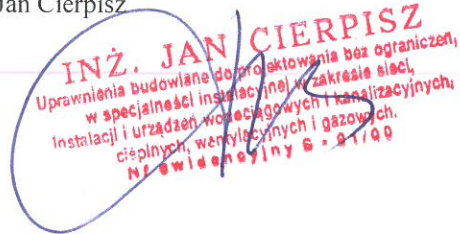 Jan Cierpisz
INŻ. JAN CIERPISZ
Uprawnienia budowlane do projektowania bez ograniczeń,
w specjalności instalacyjnej w zakresie sieci,
instalacji i urządzeń wodociągowych i kanalizacyjnych,
cieplnych, wentylacyjnych i gazowych.
Nr ewidencyjny